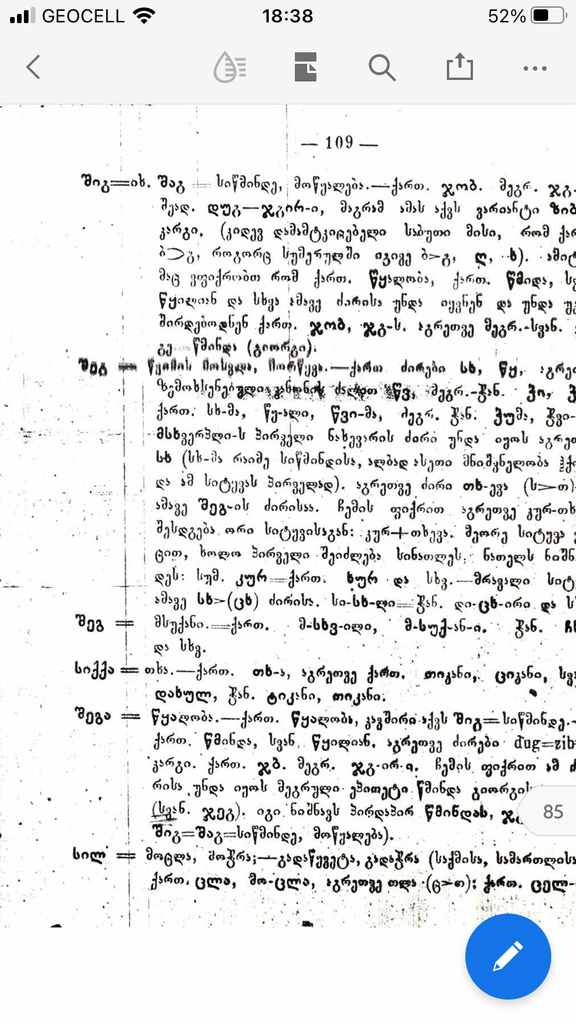 GEOCELL 18:38 52%
— 109 —
შიგ=იხ. შაგ — სიწმინდე, მოწყალება.—ქართ. ჯობ. მეგრ. ჯგ.
შეად. დუგ—ჯგირ-ი, მაგრამ ამას აქვს ვარიანტი ზიბ
კარგი. (კიდევ დამამტკიცებელი საბუთი მისი, რომ ქარ
ბ>გ, როგორც სუმერულში იგივე ბ>გ, ღ, ხ). ამიტ
მაც ვფიქრობთ რომ ქართ. წყალობა, ქართ. წმიდა, სვ
წყილიან და სხვა ამავე ძირისა უნდა იყვნენ და უნდა უკ
შირდებოდნენ ქართ. ჯობ, ჯგ-ს. აგრეთვე მეგრ.-სვან.
გე წმინდა (გიორგი).
შეგ — წვიმის მოსვლა, მორწყვა.—ქართ ძირები სხ, წყ, აგრე
ზემოხსენებული კანონის ძალით წვ, მეგრ.-ჭან. ჭი,
ქართ. სხ-მა, წყ-ალი, წვი-მა, მეგრ. ჭან. ჭუმა, ჭვი-
მსხვერპლი-ს პირველი ნახევარის ძირი უნდა იყოს აგრე
სხ (სხ-მა რაიმე სიწმინდისა, ალბად ასეთი მნიშვნელობა ჰქო
და ამ სიტყვას პირველად). აგრეთვე ძირი თხ-ევა (ს>თ)
ამავე შეგ-ის ძირისაა. ჩემის ფიქრით აგრეთვე კურ-თხ
შესდგება ორი სიტყვისაგან: კურ+თხევა. მეორე სიტყვა
ცით, ხოლო პირველი შეიძლება სინათლეს, ნათელს ნიშნ
დეს: სუმ. კურ=ქართ. ხურ და სხვ.—მრავალი სიტ
ამავე სხ>(ცხ) ძირისა. სი-სხ-ლი=ჭან. დი-ცხ-ირი და ს
შეგ = მსუქანი.=ქართ. მ-სხვ-ილი, მ-სუქ-ან-ი. ჭან. ჩხ
და სხვ.
სიქქა = თხა.—ქართ. თხ-ა, აგრეთვე ქართ. თიკანი, ციკანი, სვა
დახულ, ჭან. ტიკანი, თიკანი.
შეგა = წყალობა.—ქართ. წყალობა, კავშირი აქვს შიგ=სიწმინდე.-
ქართ. წმინდა, სვან. წყილიან. აგრეთვე ძირები dug=zib
კარგი. ქართ. ჯბ. მეგრ. ჯგ-ირ-ი. ჩემის ფიქრით ამ ძ
რისა უნდა იყოს მეგრული ეპითეტი წმინდა გიორგის
(სვან. ჯეგ). იგი ნიშნავს პირდაპირ წმინდას, ჯგ
შიგ=შაგ=სიწმინდე, მოწყალება).
სილ = მოცლა, მოჭრა;—გადაწყვეტა, გადაჭრა (საქმისა, სამართლისა
ქართ. ცლა, მო-ცლა, აგრეთვე თლა (ც>თ); ქართ. ცელ-
85